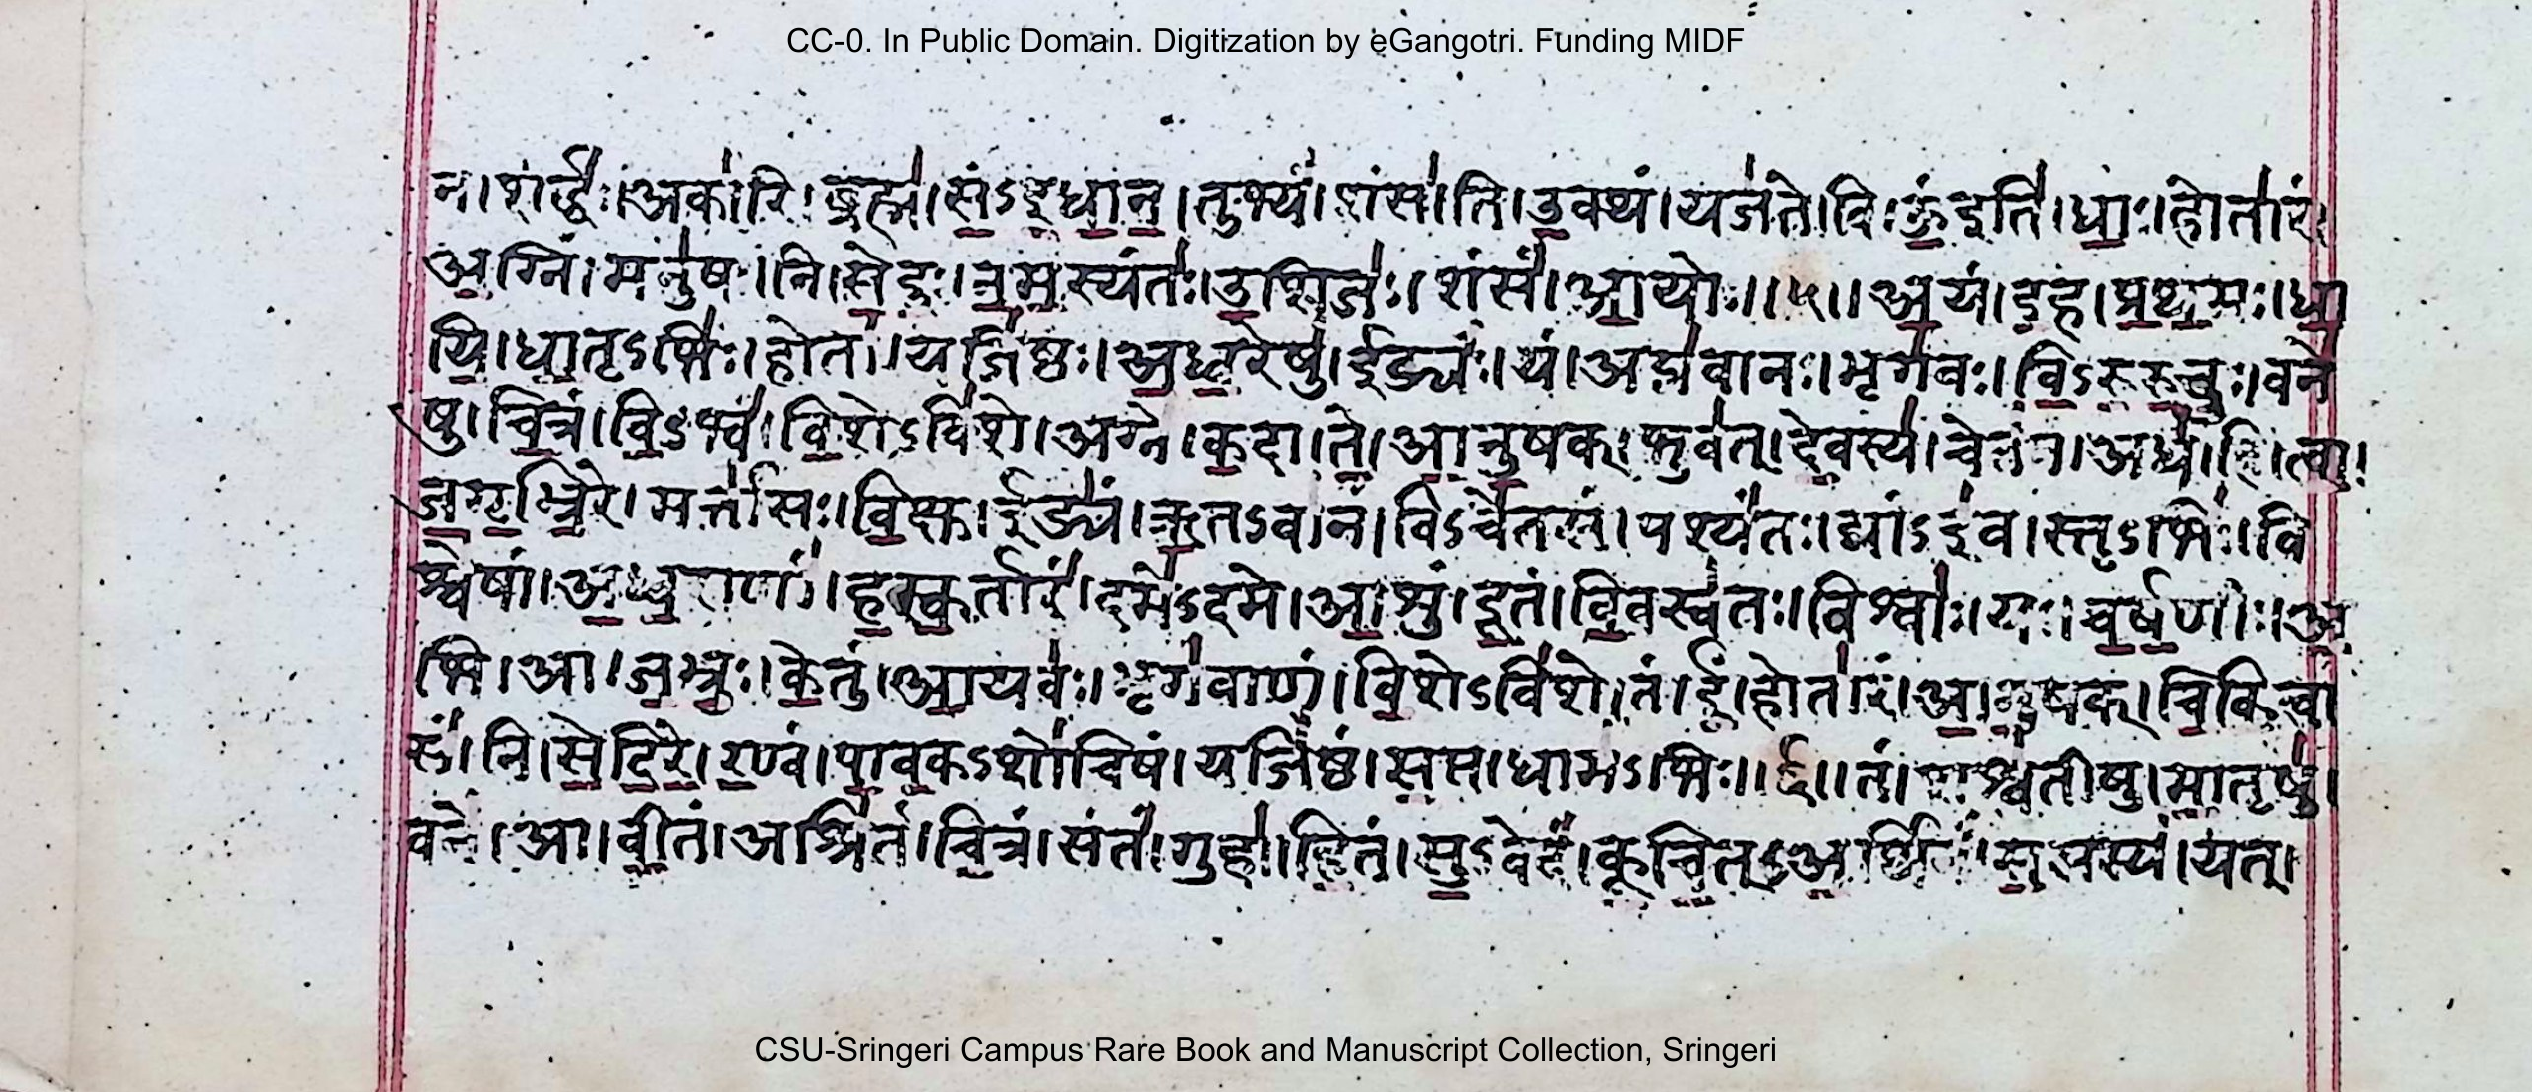 CC-0. In Public Domain. Digitization by eGangotri. Funding MIDF
न। शर्द्धः॑। अका॑रि। ब्रह्म॑। सं॒ऽइ॒धा॒न॒। तुभ्यं॑। शंसा॑ति। उ॒क्थं। यज॑ते। वि। ऊं॒इति॑। धाः॒। होता॑रं।
अ॒ग्निं। मनु॑षः। नि। से॒दुः॒। न॒म॒स्यंतः॑। उ॒शिजः॑। शंसं॑। आ॒योः॥५॥ अ॒यं। इ॒ह। प्र॒थ॒मः। धा॒
यि॒। धा॒तृऽभिः॑। होता॑। यजि॑ष्ठः। अ॒ध्व॒रेषु॑। ईड्यः॑। यं। अप्न॑वानः। भृग॑वः। वि॒ऽरु॒रु॒चुः। वने॑
षु। चि॒त्रं। वि॒ऽभ्वं॑। वि॒शेऽवि॑शे। अग्ने॑। क॒दा। ते॒। आ॒नु॒षक्। भुव॑त्। दे॒वस्य॑। चेत॑नं। अध॑। हि। त्वा॒।
ज॒गृ॒भ्रि॒रे। मर्त्ता॑सः। वि॒क्षु। ईड्यं॑। ऋ॒तऽवा॑नं। विऽचे॑तसं। पश्यं॑तः। द्यांऽइ॑व। स्तृऽभिः॑। वि
श्वे॑षां। अ॒ध्व॒राणां॑। ह॒स्क॒र्तारं॑। दमे॑ऽदमे। आ॒शुं। दू॒तं। वि॒वस्व॑तः। विश्वाः॑। यः। च॒र्ष॒णीः। अ॒
भि। आ। ज॒भ्रुः॒। के॒तुं। आ॒यवः॑। भृग॑वाणं। वि॒शेऽवि॑शे। तं। ईं॒। होता॑रं। आ॒नु॒षक्। चि॒कि॒त्वां
सं॑। नि। से॒दि॒रे॒। र॒ण्वं। पा॒व॒कऽशो॑चिषं। यजि॑ष्ठं। स॒प्त। धाम॑ऽभिः॥६॥ तं। शश्व॑तीषु। मा॒तृषु॑।
वने॑। आ। वी॒तं। अश्रि॑तं। चि॒त्रं। संतं॑। गुहा॑। हि॒तं। सु॒ऽवेदं॑। कू॒चि॒त्ऽअ॒र्थिनं॑। स॒सस्य॑। यत्।
CSU-Sringeri Campus Rare Book and Manuscript Collection, Sringeri